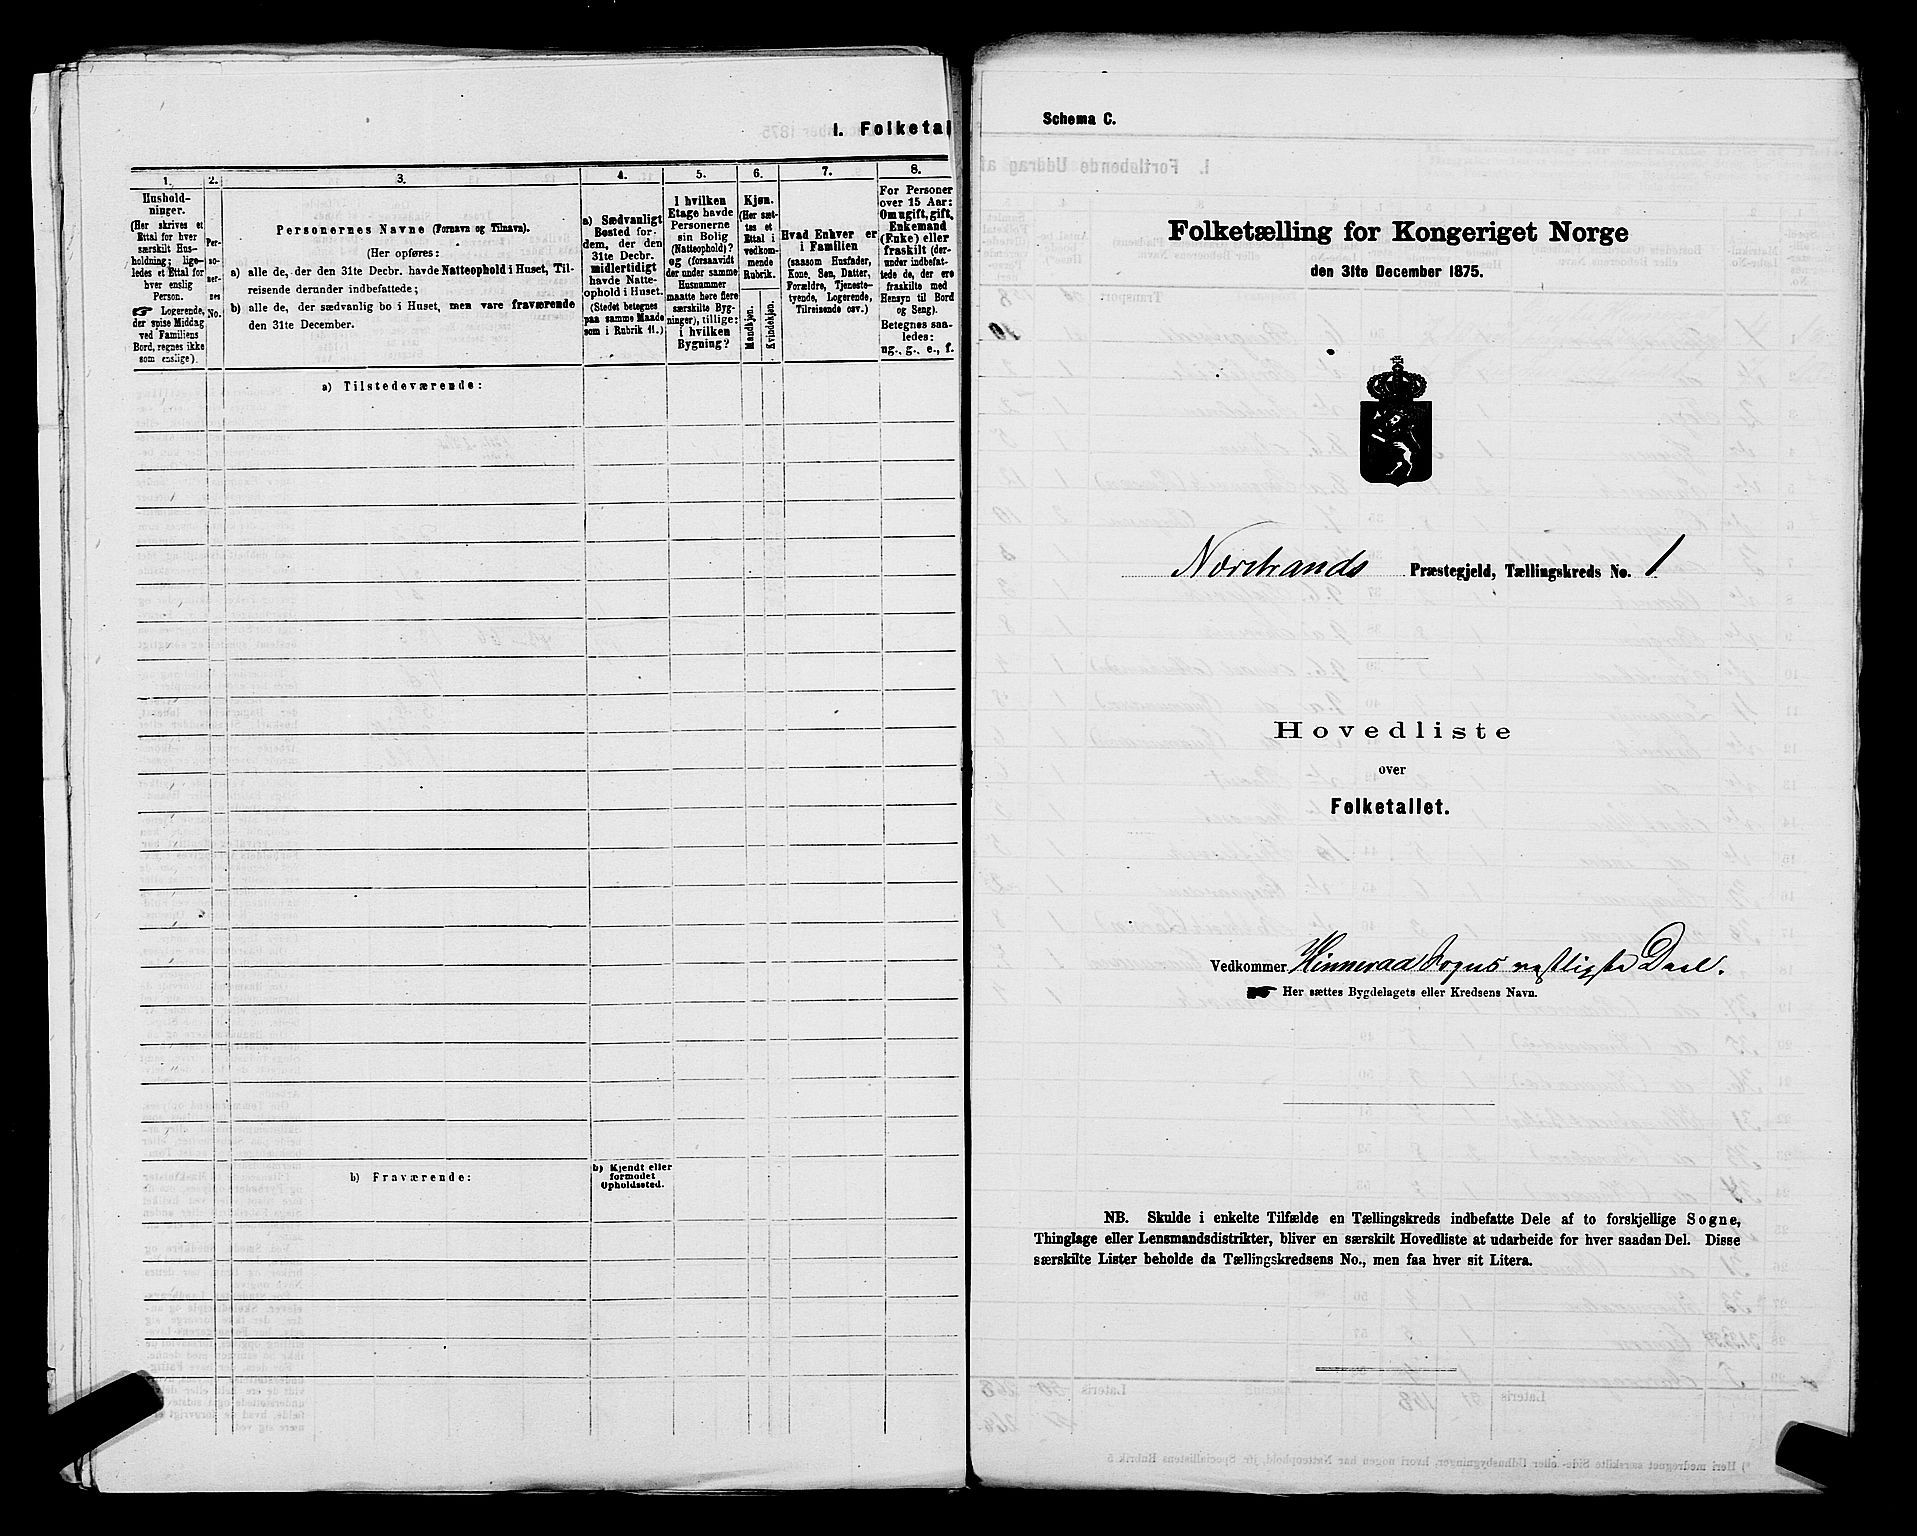 I. Folketal
1.
2.
3.
4.
5.
6.
7.
8.
Hushold-
ninger.
(Her skrives et
Ettal for hver
særskilt Hus-
holdning; lige-
ledes et Ettal for
hver enslig
Person.
☞ Logerende,
der spise Middag
ved Familiens
Bord, regnes ikke
som enslige).
Per-
so-
ner-
nes
No.
Personernes Navne (Fornavn og Tilnavn).
(Her opføres:
a) alle de, der den 31te Decbr. havde Natteophold i Huset, Til-
reisende derunder indbefattede;
b) alle de, der sædvanlig bo i Huset, men vare fraværende
den 31te December.
a) Sædvanligt
Bosted for-
dem, der den
31te Decbr.
midlertidigt
havde Natte-
ophold i Huset.
(Stedet betegnes
paa samme Maade
som i Rubrik 11.)
I hvilken
Etage havde
Personerne
sin Bolig
(Natteophold)?
og (forsaavidt
der under samme
Husnummer
maatte høre flere
særskilte Byg-
ninger), tillige:
i hvilken
Bygning?
Kjøn.
(Her sæt-
tes et
Ettal i
vedkom-
mende
Rubrik.
Mandkjøn.
Kvindekjøn.
Hvad Enhver er
i Familien
(saasom Husfader,
Kone, Søn, Datter,
Forældre, Tjeneste-
tyende, Logerende,
Tilreisende osv.)
For Personer
over 15 Aar:
Om ugift, gift,
Enkemand
(Enke) eller
fraskilt (der-
under indbefat-
tede de, der ere
fraskilte med
Hensyn til Bord
og Seng).
Betegnes saa-
ledes:
ug., g., e., f.
a) Tilstedeværende:
b) Fraværende:
b) Kjendt eller
formodet
Opholdssted.
Schema C.
Folketælling for Kongeriget Norge
den 31te December 1875.
Nærstrands Præstegjeld, Tællingskreds No. 1
Hovedliste
over
Folketallet.
Vedkommer Hinneraa Sogns vestligste Deel.
☞ Her sættes Bygdelagets eller Kredsens Navn.
NB. Skulde i enkelte Tilfælde en Tællingskreds indbefatte Dele af to forskjellige Sogne,
Thinglage eller Lensmandsdistrikter, bliver en særskilt Hovedliste at udarbeide for hver saadan Del. Disse
særskilte Lister beholde da Tællingskredsens No., men faa hver sit Litera.